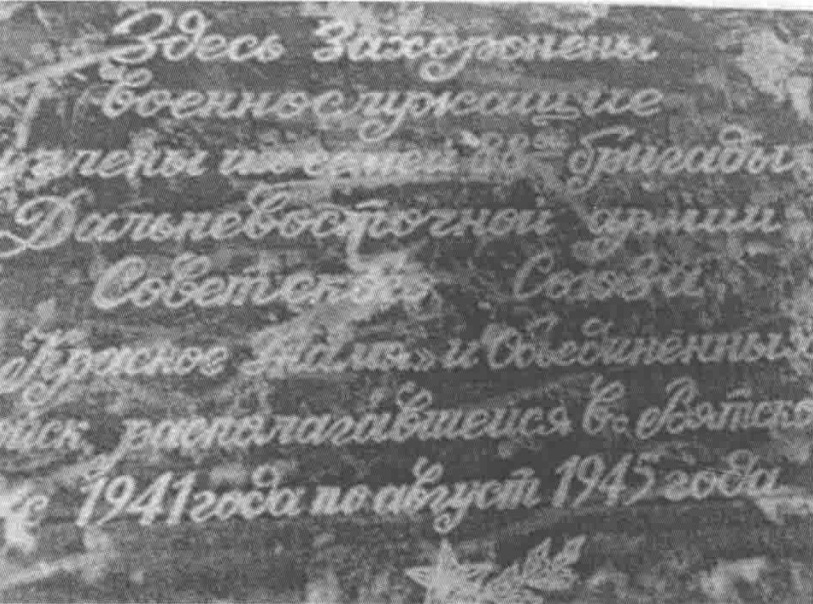 Здесь Захоронены
военнослужащие
и члены их семей 88ой бригады
Дальневосточной армии
Советского Союза
«Красное Знамя» и Объединённых
войск, располагавшейся в с. Вятское
с 1941 года по август 1945 года